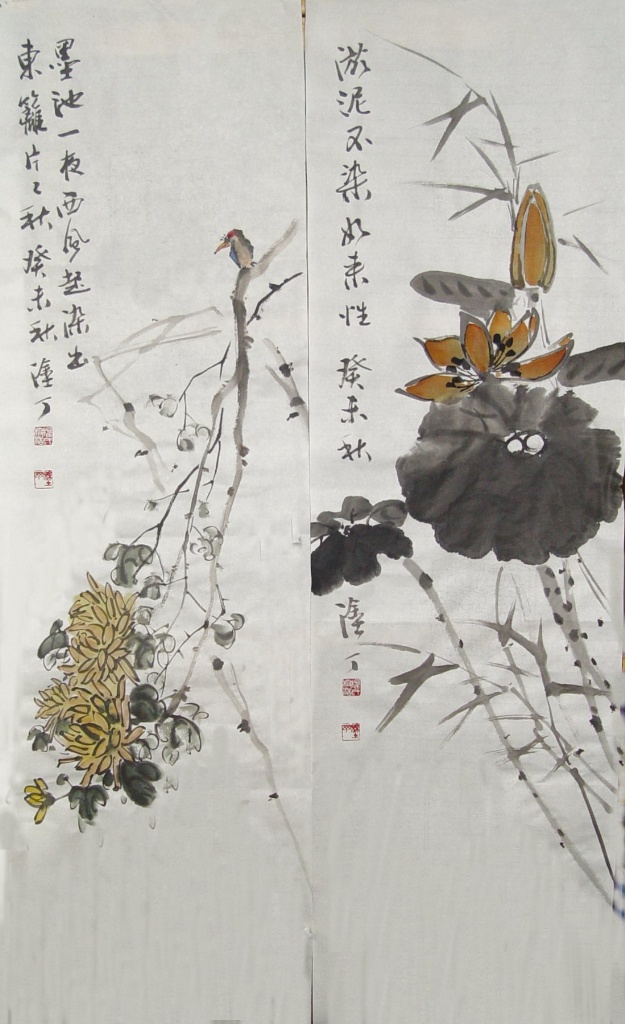 淤泥不染如来性 癸未秋
丁
墨池一夜西风起染出
東籬片々秋癸未秋丁